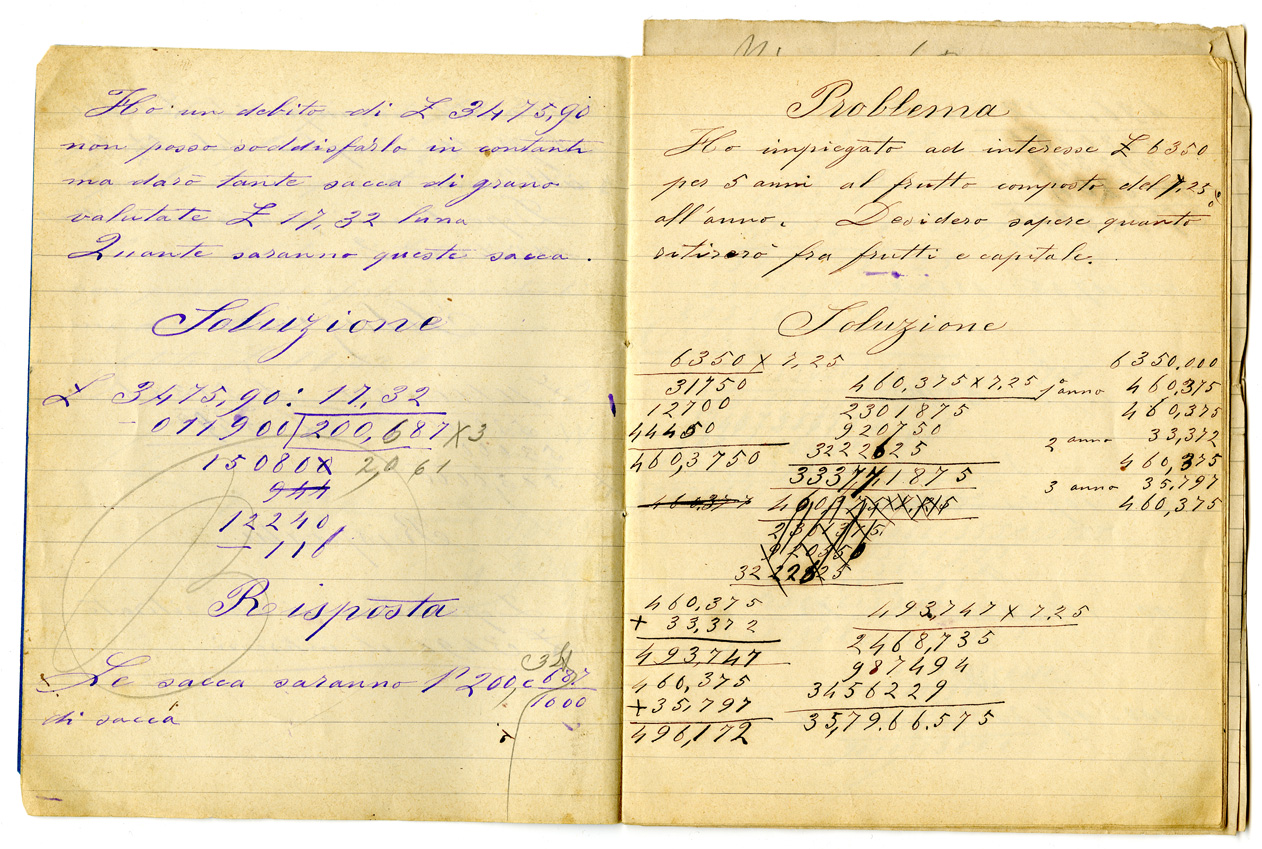 Ho un debito di £ 3475,90
non posso soddisfarlo in contanti
ma darò tante sacca di grano
valutate £ 17,32 luna
Quante saranno queste sacca.
Soluzione
£ 3475,90 : 17,32
-011900 200,687 X3
15080X 2,061
944
12240
-116
Risposta
Le sacca saranno n° 200, e 687/1000
di sacca
Problema
Ho impiegato ad interesse £ 6350
per 5 anni al frutto composto del 7,25%
all'anno. Desidero sapere quanto
ritirerò fra frutti e capitale.
Soluzione
6350 x 7,25
31750
12700
44450
460,3750
460,375 x 7,25
2301875
920750
3222625
333771875
230 1375
6350.000
1° anno 460,375
460,375
2 anno 33,372
460,375
3 anno 35,797
460,375
460,375
+ 33,372
493,747
460,375
+35,797
496,172
493,747 x 7.25
2468,735
987494
3456229
35,79.66.575